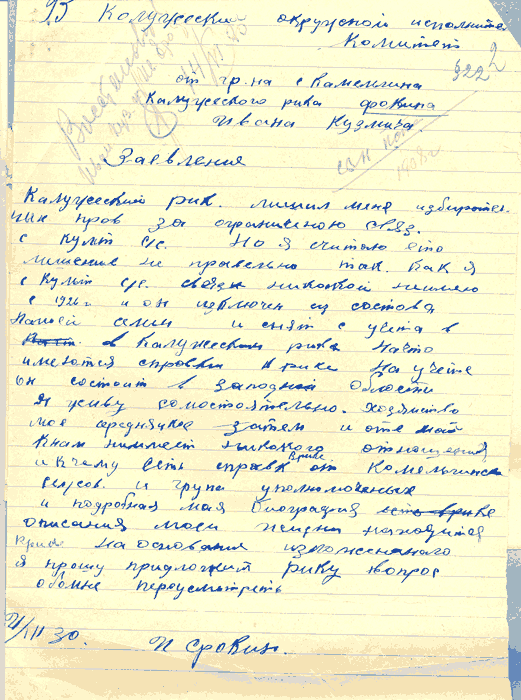 95 Калужеский окружной исполните
Комитет
322 2
от гр.на с Камельгина
Калужеского рика фрокина
Ивана Кузмича.
Заевления
1908г
Калужеский рик. лишил меня избирател.
ных пров за ограниченою связ.
с культ с/с. Но я считаю ето
лишение не правельно так. как я
с культ с/с. связи никокой ниимею
с 1926 г и он изключен из состова
Нашей семи и снят с учета в
в Калужеском рике Начто
имеютса справки врике На учете
он состоит в Заподной области
Я живу самостоятельно. Хозяйство
мое середняцкое затем и отец мой
Кнам ниимеет никокого отношения
и Кчему есть справк врике от Камельгинск
сельсов. и група уполномоченых
и подробная моя биография есть врике
описания моей жизни находитса
врике на основания изложеннаго
я прошу придложит рику вопрос
обомне пересмотреть
/XII 30. И Фрокин.